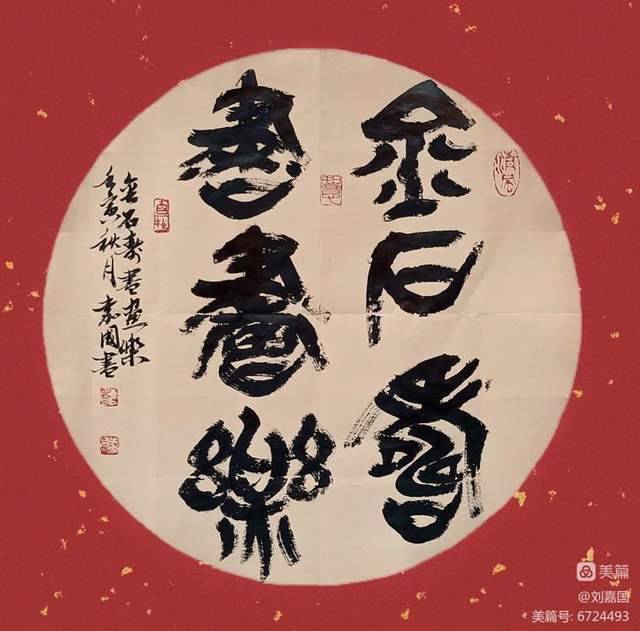 金石壽
書畫樂
金石壽書畫樂
壬寅秋月嘉国書
美篇
@刘嘉国
美篇号: 6724493